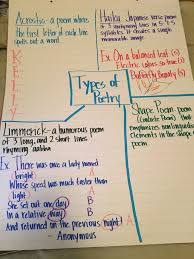 Acrostic - a poem where
the first letter of each line
spells out a word.
KELLY
Haiku - Japanese verse poem
of 3 unrhymed lines in 5-7-5
syllables
Ex. On a balanced leaf (5)
Electric
Butterfly Beauty (5)
Types of
Poetry
Limmerick - a humorous poem
of 3 long, and 2 short lines
rhyming aabba
Ex There was once a lady named
bright A
Whose speed was much faster than
light A
She set out one day B
In a relative way B
And returned on the previous night A
- Anonymous
Shape Poem - poem
(Concrete Poem) that
emphasizes nonlinguistic
elements in the shape of
poem